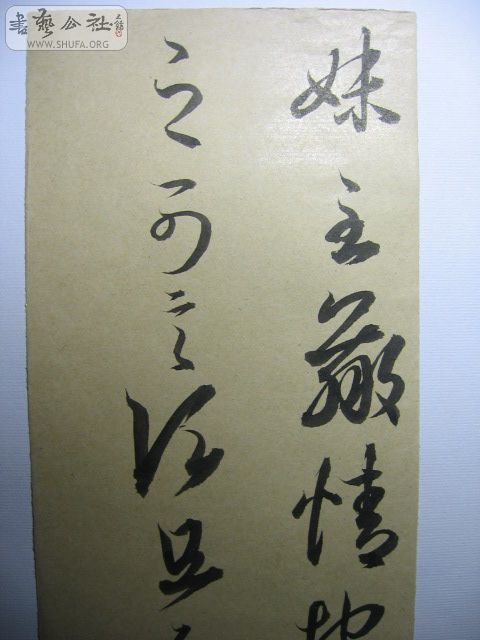 書藝公社
WWW.SHUFA.ORG
妹至羸情地
之可言須旦